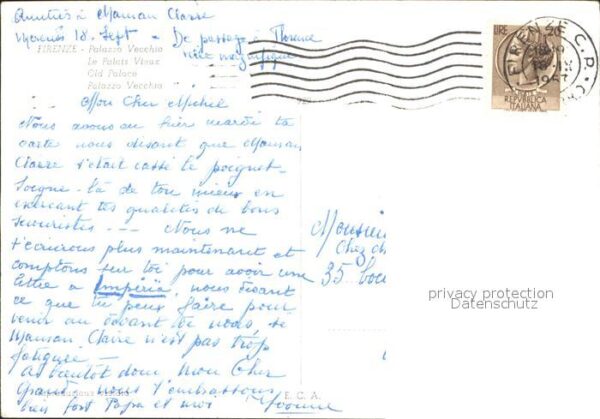 Amitiés à Maman Claire
Mercredi 18. Sept - De passage à Florence
ville magnifique
FIRENZE - Palazzo Vecchio
Le Palais Vieux
Old Palace
Palazzo Vecchio
LIRE 20
REPVBBLICA
ITALIANA
FIRENZE C.P.
18-IX
1957
Mon Cher Michel
Nous avons eu hier mardi ta
carte nous disant que Maman
Claire s'était cassé le poignet -
Soigne-là de ton mieux en
exerçant tes qualités de bons
secouristes --- Nous ne
t'écrirons plus maintenant et
comptons sur toi pour avoir une
lettre à Imperia, nous disant
ce que tu peux faire pour
venir au devant de nous, si
Maman Claire n'est pas trop
fatiguée -
A bientôt donc Mon Cher
Grand nous t'embrassons
bien fort Papa et moi Yvonne
Monsieur
Chez
35
E. C. A.
privacy protection
Datenschutz